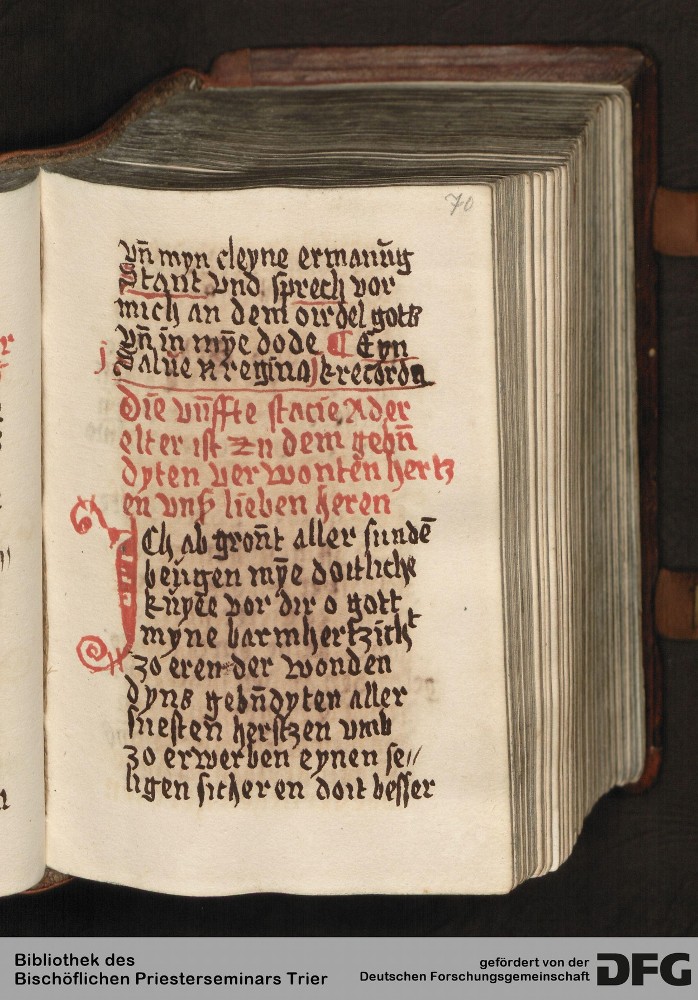 70
vn̄ myn cleyne ermanūg
Stant vnd sprech vor
mich an dem oirdel gotts
vn̄ in mȳe dode ¶ Eyn
Salue regina recorda
Die vūffte stacie Ader
elter ist zu dem gebn̄
dyten verwonten hertz
en vnß lieben heren
ICh ab gron̄t aller sundē
beugen mȳe doitliche
knyee vor dir o gott
myne barmhertzicht
zo eren der wonden
dyns gebn̄dyten aller
suesten herstzen vmb
zo erwerben eynen se//
ligen sicheren doit besser
Bibliothek des
Bischöflichen Priesterseminars Trier
gefördert von der
Deutschen Forschungsgemeinschaft
DFG